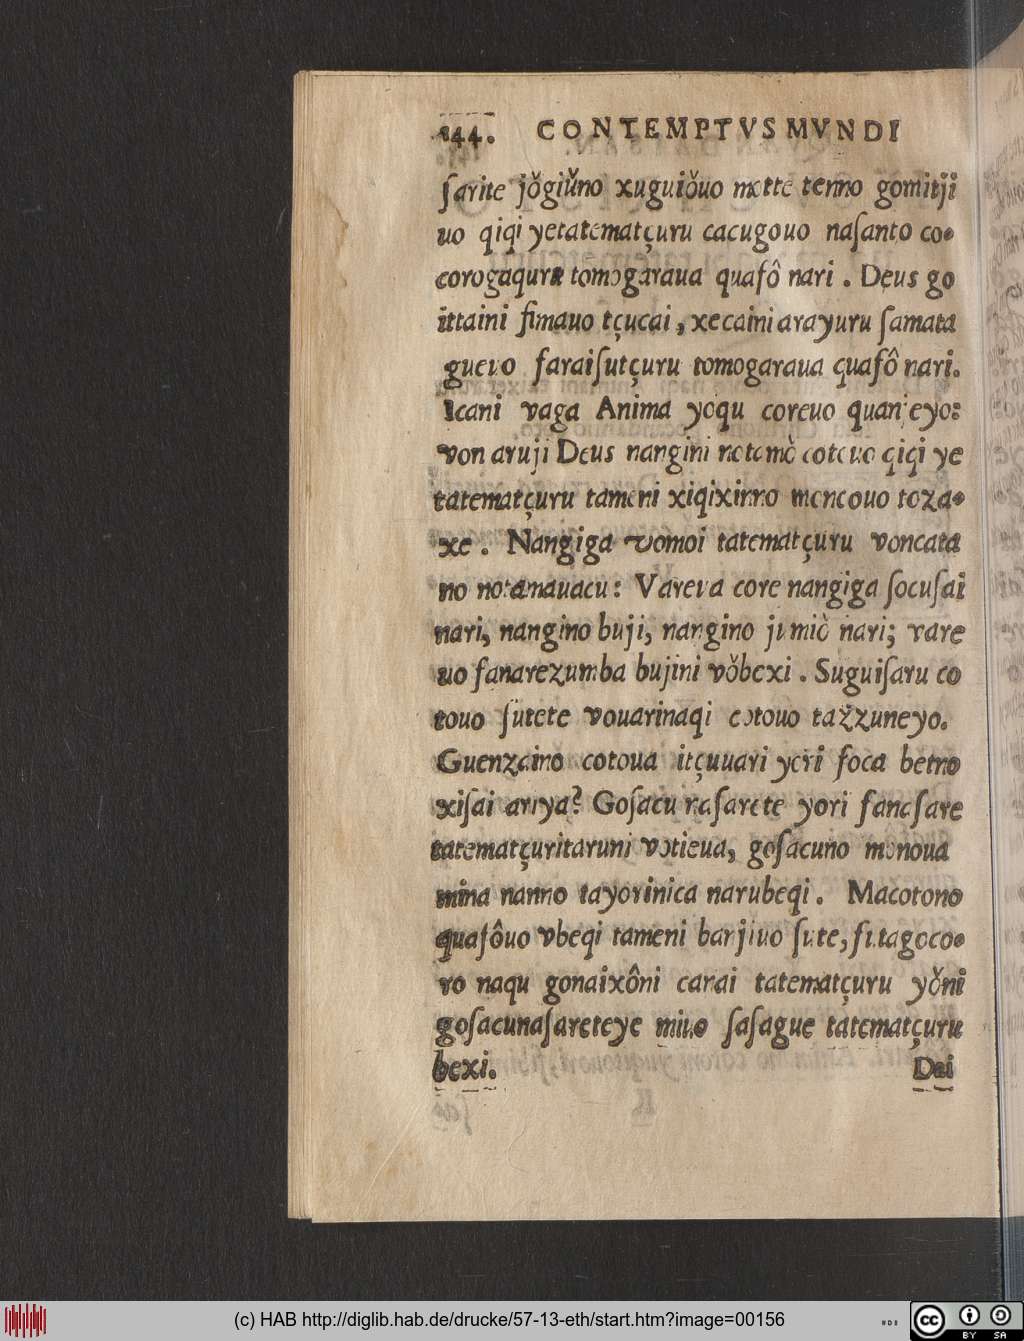 144. CONTEMPTVS MVNDI
ſarite jǒgiǔno xuguiǒuo motte tenno gomitji
uo qiqi yetatematçuru cacugouo naſanto co-
corogaqura tomogaraua quafô nari. Deus go
ittaini fimauo tçucai, xecaini arayuru ſamata
gueuo faraiſutçuru tomogaraua quafô nari.
Icani vaga Anima yoqu coreuo quanjeyo:
von aruji Deus nangini notamǒ cotouo qiqi ye
tatematçuru tameni xiqixinno moncouo toza-
xe. Nangiga vomoi tatematçuru voncata
no notamauacu: Vareua core nangiga ſocuſai
nari, nangino buji, nangino jumiǒ nari; vare
uo fanarezumba bujini vǒbexi. Suguiſaru co
touo ſutete vouarinaqi cotouo tazzuneyo.
Guenzaino cotoua itçuuari yori foca betno
xiſai ariya? Goſacu naſarete yori fanaſare
tatematçuritaruni voiteua, goſacuno monoua
mina nanno tayorinica narubeqi. Macotono
quafôuo vbeqi tameni banjiuo ſute, futagoco-
ro naqu gonaixôni canai tatematçuru yǒni
goſacunaſareteye miuo ſaſague tatematçuru
bexi. Dai
(c) HAB http://diglib.hab.de/drucke/57-13-eth/start.htm?image=00156
cc BY SA